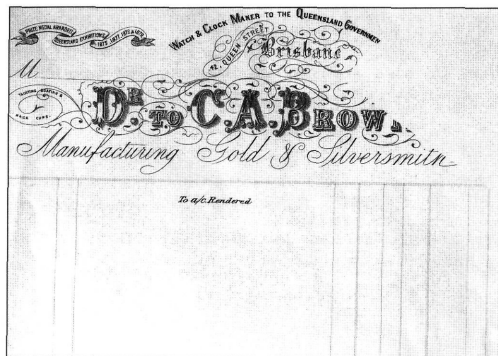 PRIZE MEDAL AWARDED
QUEENSLAND EXHIBITIONS
WATCH & CLOCK MAKER TO THE QUEENSLAND GOVERNMEN
42, QUEEN STREET
Brisbane
M
DR. TO C.A. BROW
Manufacturing Gold & Silversmith
To a/c. Rendered